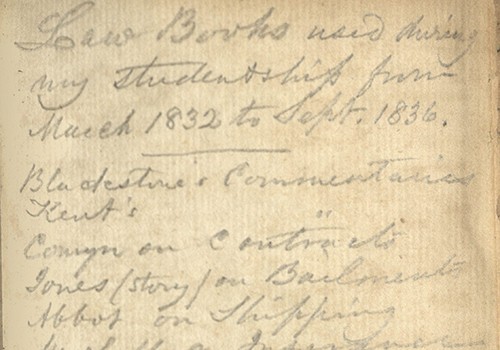 Law Books used during
my studentship from
March 1832 to Sept. 1836.
Blackstone's Commentaries
Kent's "
Comyn on Contracts
Jones (Story) on Bailments
Abbot on Shipping
on Insurance